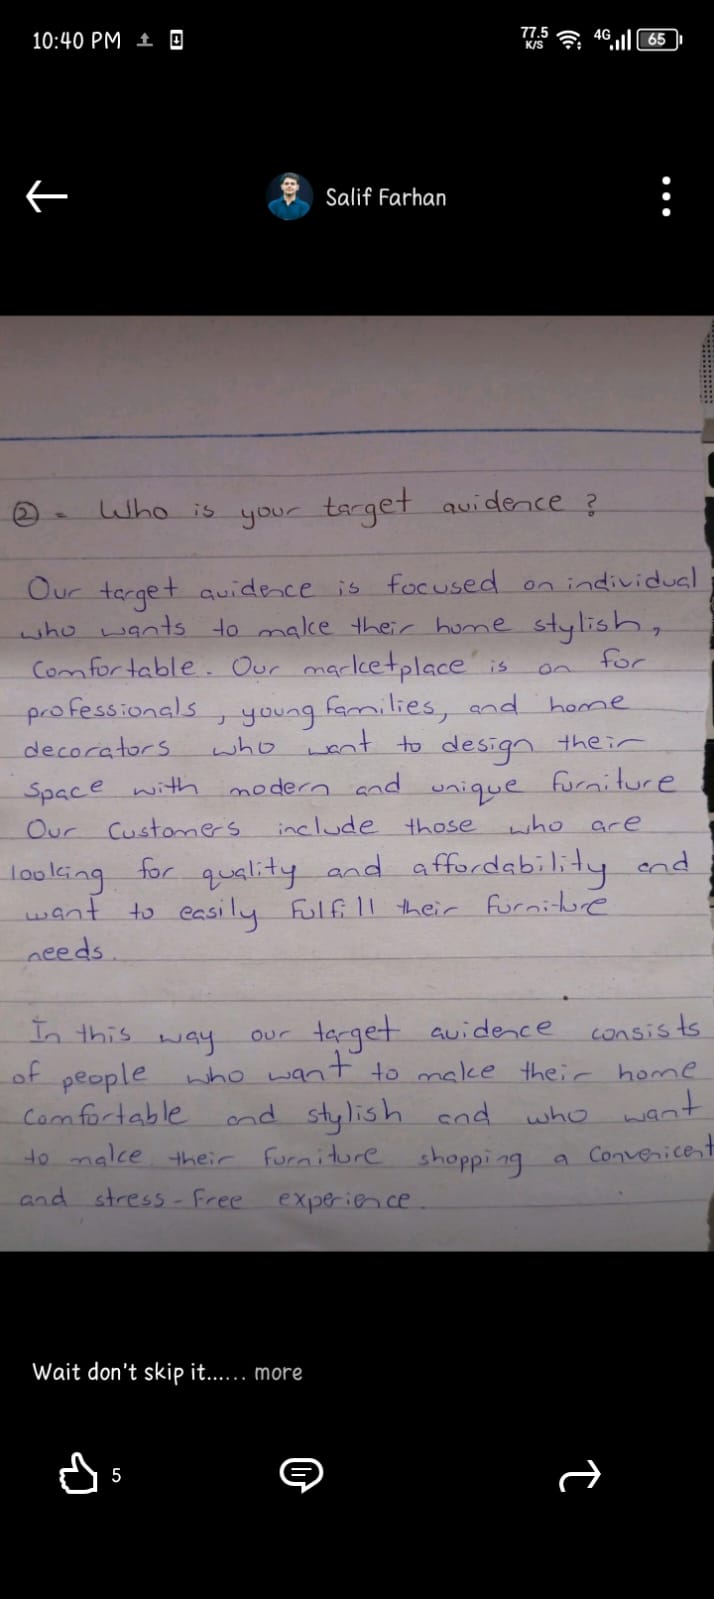 10:40 PM
77.5 K/S 4G 65
Salif Farhan
② = Who is your target auidence ?
Our target auidence is focused on individual
who wants to make their home stylish,
Comfortable. Our marketplace is on for
professionals, young families, and home
decorators who want to design their
Space with modern and unique furniture
Our Customers include those who are
looking for quality and affordability and
want to easily fulfill their furniture
needs.
In this way our target auidence consists
of people who want to make their home
Comfortable and stylish and who want
to make their furniture shopping a Convenicent
and stress-free experience.
Wait don't skip it...... more
5